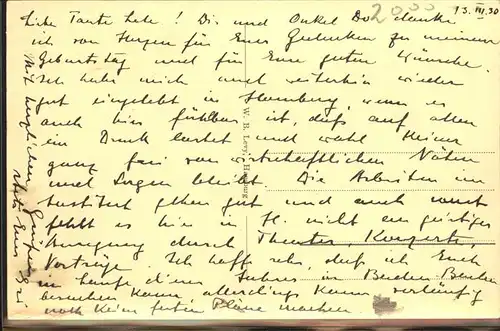 13. III. 30
Liebe Tante Lete! Dir und Onkel Do danke
ich von Herzen für Euer Gedenken zu meinem
Geburtstag und für Eure guten Wünsche.
Ich habe mich auch weiterhin wieder
gut eingelebt in Hamburg, wenn es
auch hier fühlbar ist, daß auf allen
ein Druck lastet und wohl keiner
ganz frei von wirtschaftlichen Nöten
und Sorgen bleibt. Die Arbeiten im
Institut gehen gut und auch sonst
fehlt es hier in H. nicht an geistiger
Anregung durch Theater, Konzerte,
Vorträge. Ich hoffe sehr, daß ich Euch
im Laufe dieses Jahres in Baden-Baden
besuchen kann, allerdings kann vorläufig
noch keine festen Pläne machen.
Mit herzlichen Grüßen
stets Euer
W. B. Levy, Hamburg
2000